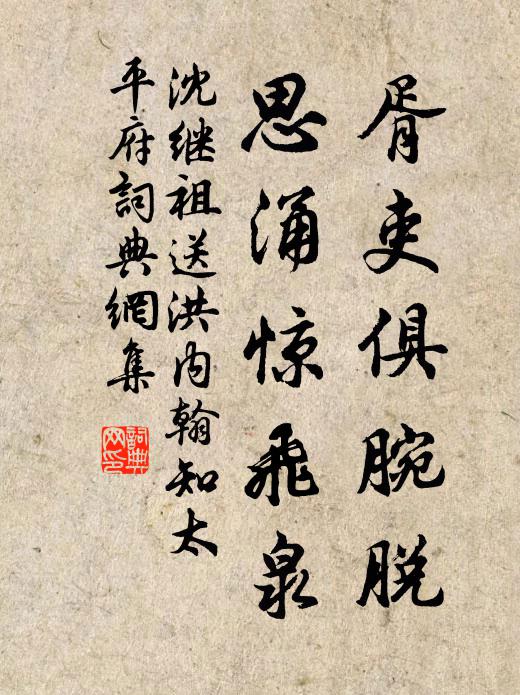 胥吏俱腕脱
思涌惊飛泉
沈继祖送洪内翰知太
平府詞典網集
詞典
网印